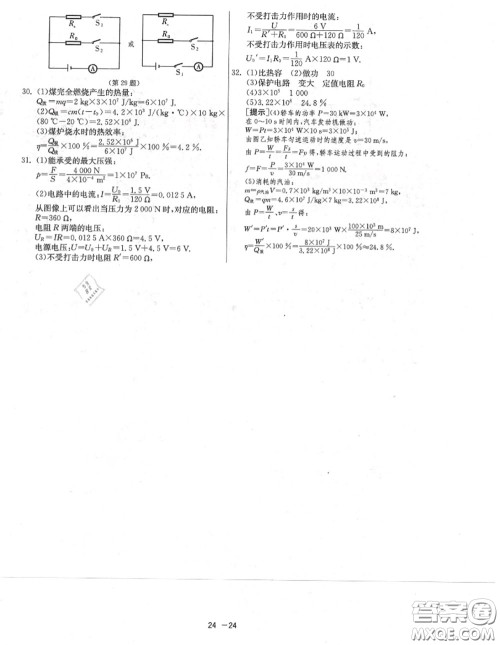 R₁ S₁ 或 R₁ S₁
R₀ R₀ S₂
S₂ A S A
(第 29 题)
30. (1)煤完全燃烧产生的热量:
Q放=mq=2 kg×3×10⁷ J/kg=6×10⁷ J.
(2)Q吸=cm(t-t₀)=4.2×10³ J/(kg·℃)×10 kg×
(80℃-20℃)=2.52×10⁶ J.
(3)煤炉烧水时的热效率:
η=Q吸/Q放×100%=2.52×10⁶ J/6×10⁷ J×100%=4.2%.
31. (1)能承受的最大压强:
p=F/S=4 000 N/4×10⁻⁴ m²=1×10⁷ Pa.
(2)电路中的电流:I=U₀/R₀=1.5 V/120 Ω=0.012 5 A.
从图像上可以看出当压力为 2 000 N时,对应的电阻:
R=360 Ω,
电阻 R 两端的电压:
UR=IR=0.012 5 A×360 Ω=4.5 V,
电源电压:U=U₀+UR=1.5 V+4.5 V=6 V.
(3)不受打击力时电阻 R'=600 Ω,
不受打击力作用时的电流:
I₁=U/R'+R₀=6 V/600 Ω+120 Ω=1/120 A,
不受打击力作用时电压表的示数:
U₀'=I₁R₀=1/120 A×120 Ω=1 V.
32. (1)比热容 (2)做功 30
(3)保护电路 变大 定值电阻 R₀
(4)3×10⁵ 1 000
(5)3.22×10⁸ 24.8%
[提示](4)轿车的功率 P=30 kW=3×10⁴ W,
在 0～10 s 时间内,汽车发动机做功:
W=Pt=3×10⁴ W×10 s=3×10⁵ J,
由图乙知轿车匀速运动时的速度 v=30 m/s,
由 P=W/t=Fs/t=Fv 得,轿车运动过程中受到的阻力:
f=F=P/v=3×10⁴ W/30 m/s=1 000 N.
(5)消耗的汽油:
由 P=W/t、v=s/t得:
W'=P't=P'·s/v=20×10³ W×100×10³ m/25 m/s=8×10⁷ J
η=W'/Q放×100%=8×10⁷ J/3.22×10⁸ J×100%≈24.8%.
24 －24
答案圈
MXQE.COM